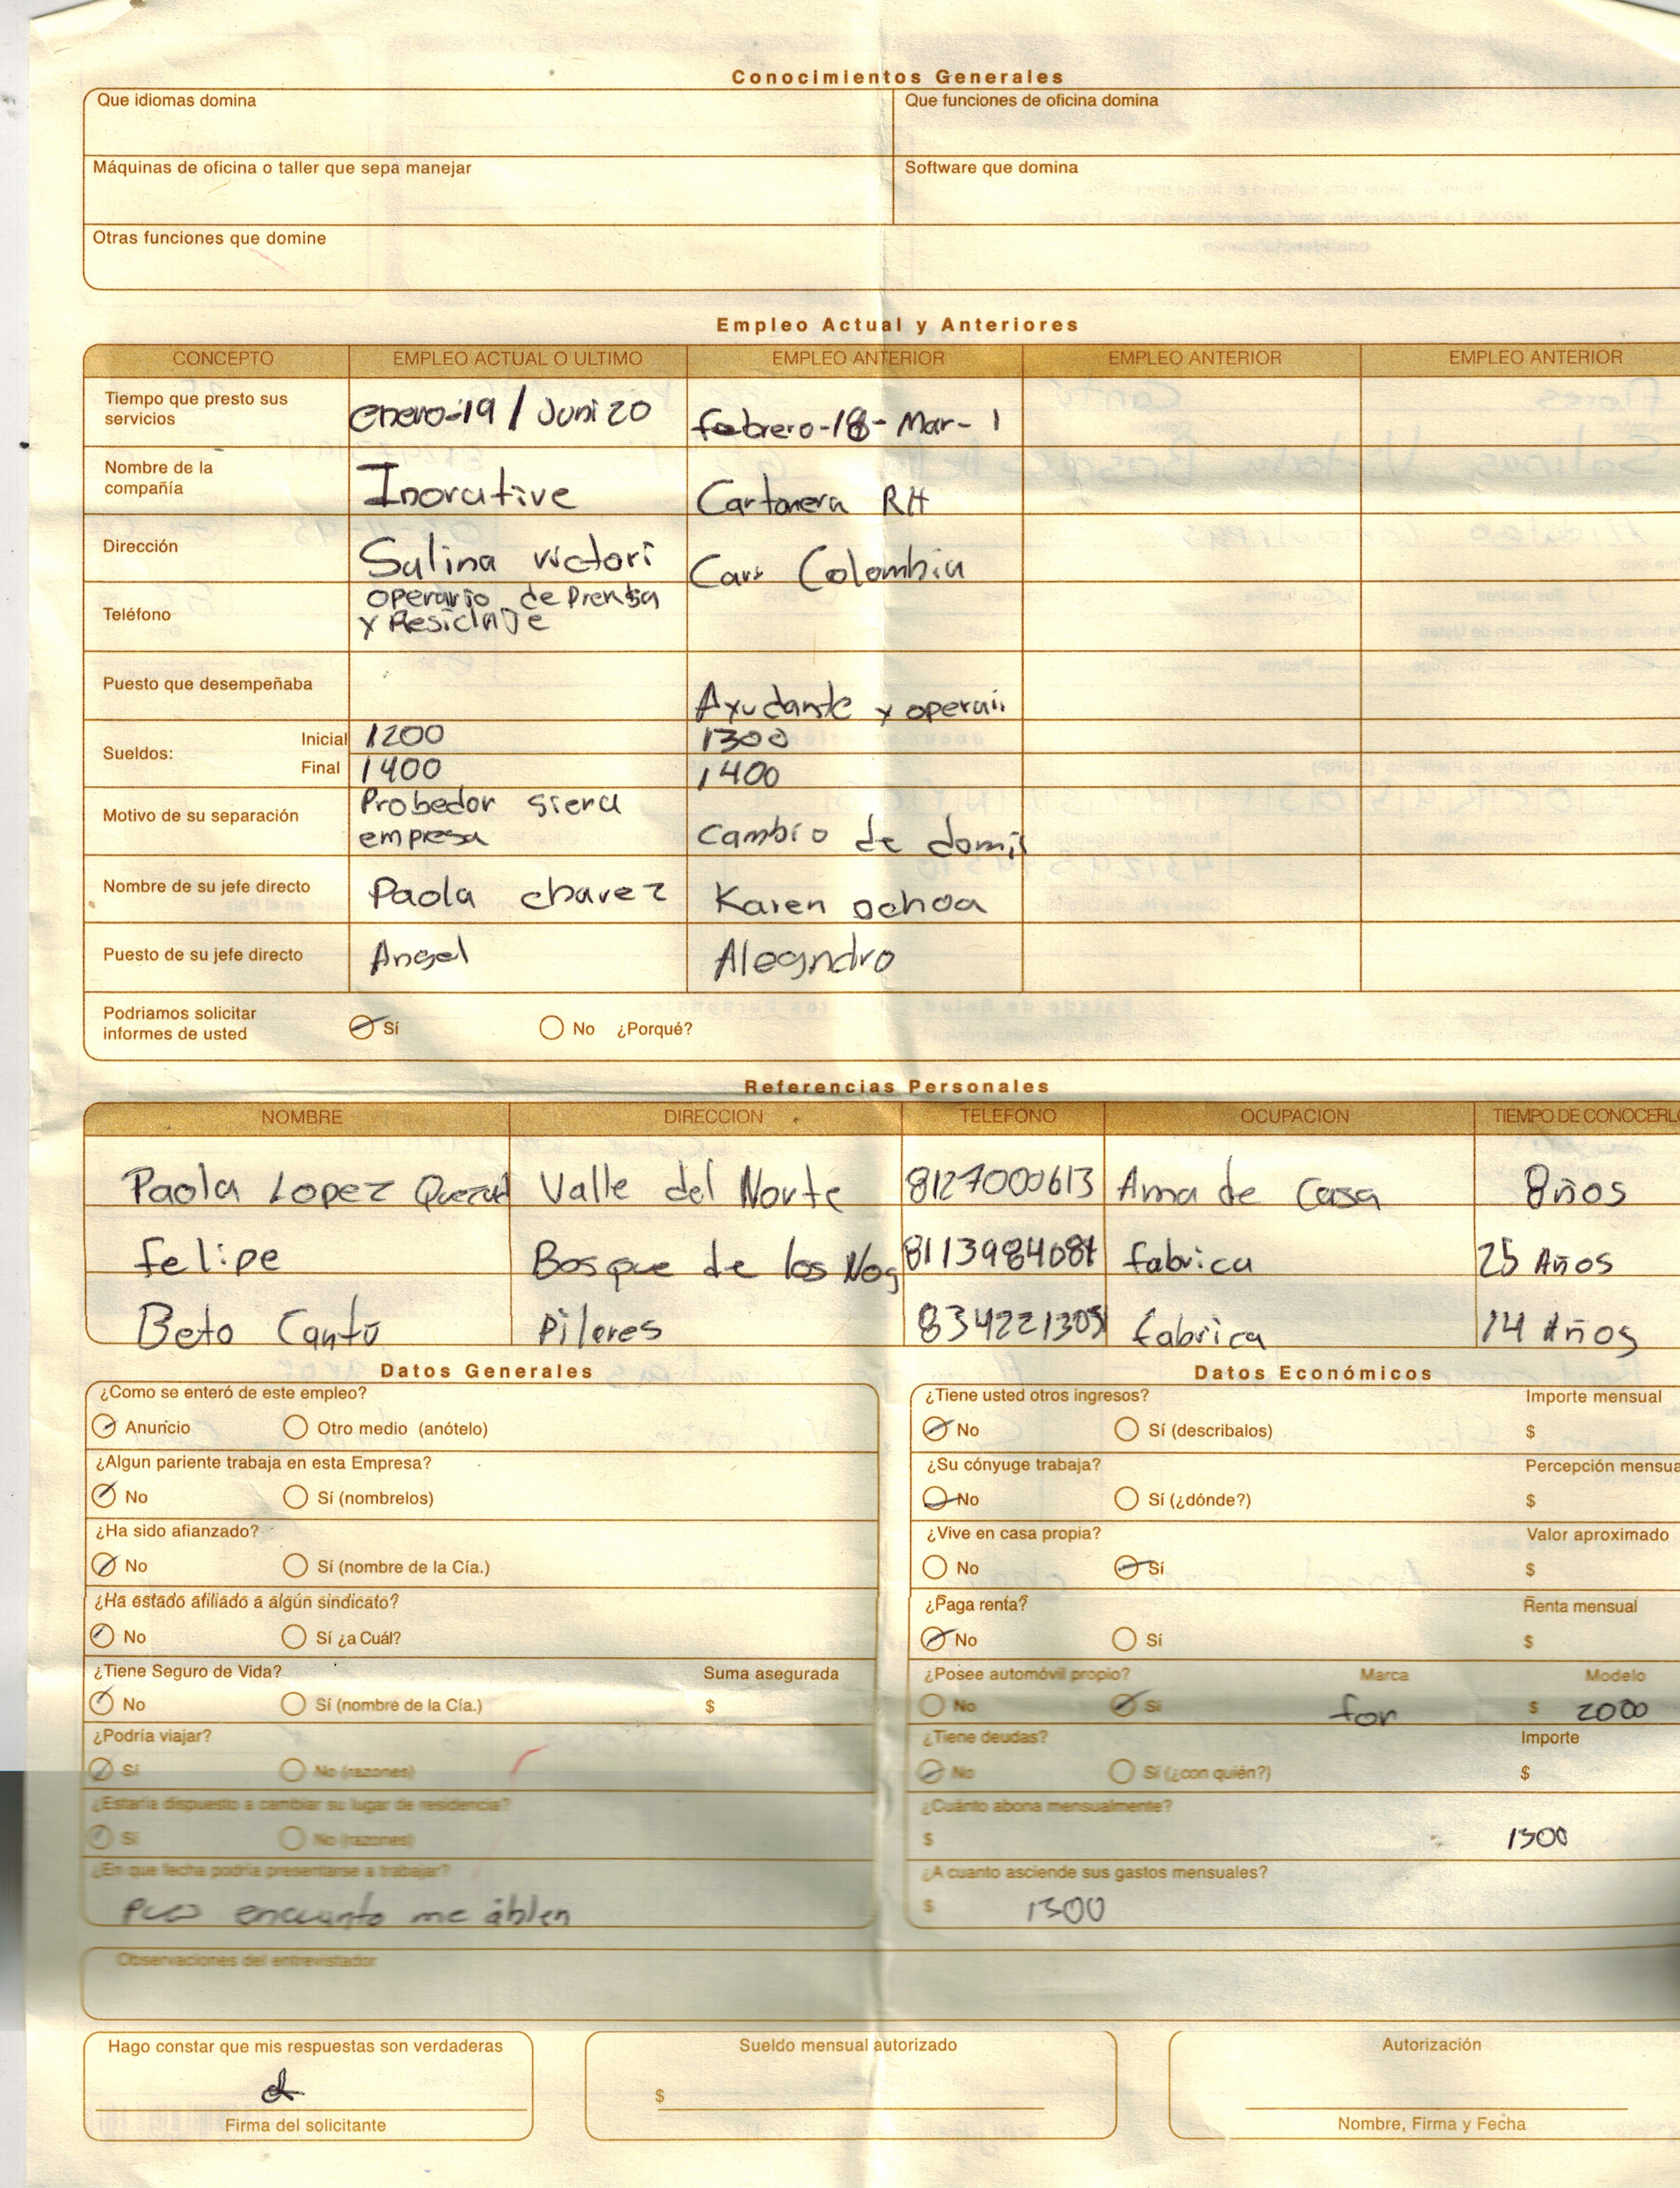 Conocimientos Generales
Que idiomas domina
Que funciones de oficina domina
Máquinas de oficina o taller que sepa manejar
Software que domina
Otras funciones que domine
Empleo Actual y Anteriores
CONCEPTO EMPLEO ACTUAL O ULTIMO EMPLEO ANTERIOR EMPLEO ANTERIOR EMPLEO ANTERIOR
Tiempo que presto sus
servicios
enero-19 / Juni 20
febrero-18- Mar- 1
Nombre de la
compañía
Inorative
Cartonera RH
Dirección
Salina victori
Carr Colombia
Teléfono
operario de Prensa
y Resiclaje
Puesto que desempeñaba
Ayudante y operari
Sueldos: Inicial 1200 1300
Final 1400 1400
Motivo de su separación
Probedor siera
empresa
cambio de domi
Nombre de su jefe directo Paola chavez Karen ochoa
Puesto de su jefe directo Angel Alegndro
Podriamos solicitar
informes de usted
Sí No ¿Porqué?
Referencias Personales
NOMBRE DIRECCION TELEFONO OCUPACION TIEMPO DE CONOCERLO
Paola Lopez Valle del Norte 8127000613 Ama de Casa 8ños
felipe Bosque de los Nog 8113984084 fabrica 25 Años
Beto Cantú Pilares 834221305 fabrica 14 Años
Datos Generales
¿Como se enteró de este empleo?
Anuncio Otro medio (anótelo)
¿Algun pariente trabaja en esta Empresa?
No Sí (nombrelos)
¿Ha sido afianzado?
No Sí (nombre de la Cía.)
¿Ha estado afiliado a algún sindicato?
No Sí ¿a Cuál?
¿Tiene Seguro de Vida? Suma asegurada
No Sí (nombre de la Cía.) $
¿Podría viajar?
Sí No (razones)
¿Estaría dispuesto a cambiar su lugar de residencia?
Sí No (razones)
¿En que fecha podría presentarse a trabajar?
pues encuanto me áblen
Datos Económicos
¿Tiene usted otros ingresos? Importe mensual
No Sí (describalos) $
¿Su cónyuge trabaja? Percepción mensua
No Sí (¿dónde?) $
¿Vive en casa propia? Valor aproximado
No Sí $
¿Paga renta? Renta mensual
No Sí $
¿Posee automóvil propio? Marca Modelo
No Sí for $ 2000
¿Tiene deudas? Importe
No Sí (¿con quién?) $
¿Cuánto abona mensualmente?
$ 1300
¿A cuanto asciende sus gastos mensuales?
$ 1300
Observaciones del entrevistador
Hago constar que mis respuestas son verdaderas
Firma del solicitante
Sueldo mensual autorizado
$
Autorización
Nombre, Firma y Fecha